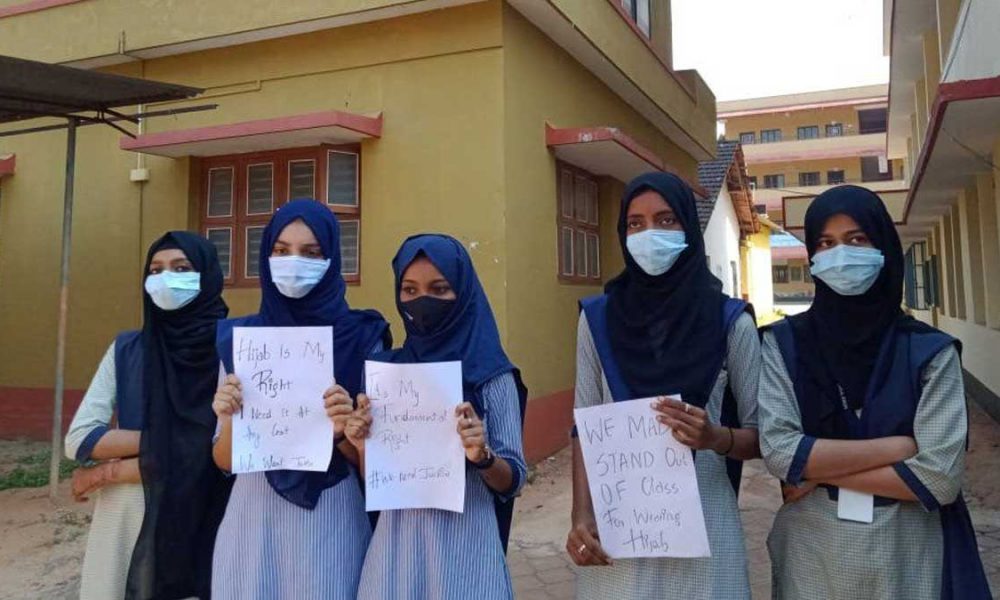 Hijab Is My
Right
I Need It At
Any Cost
We Want Justice
Is My
Fundamental
Right
#We need Justice
WE MADE
STAND Out
OF Class
For Wearing
Hijab